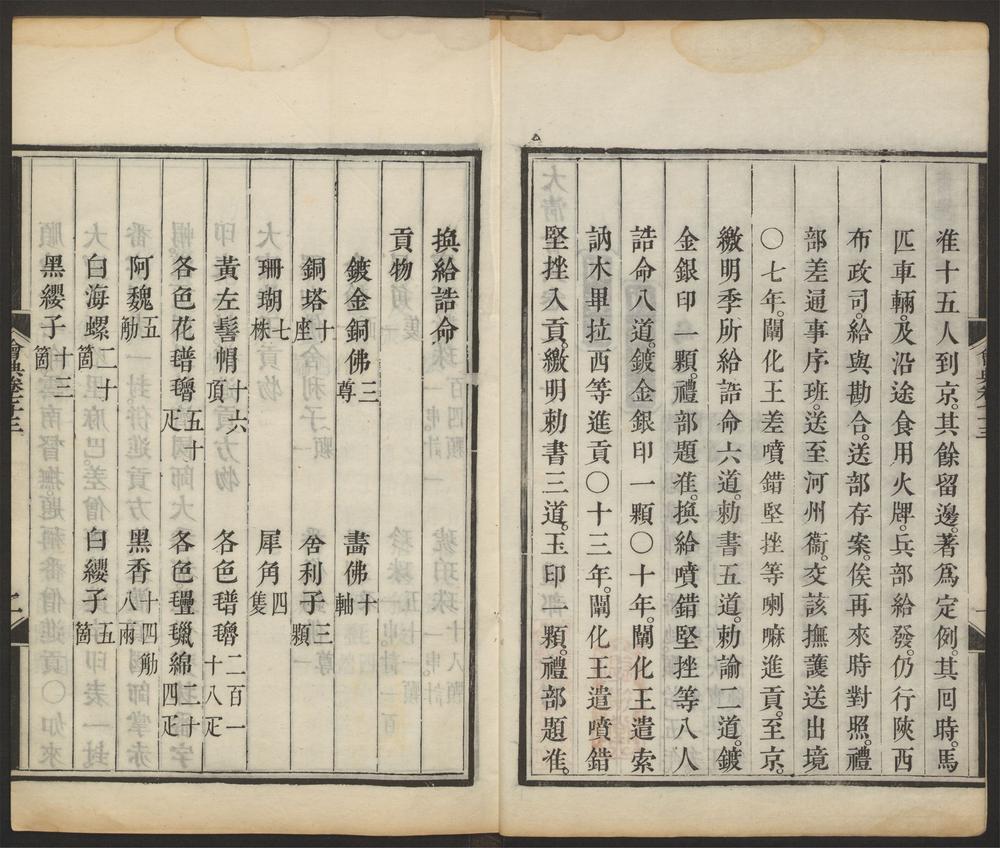 准十五人到京。其餘留邊。著爲定例。其囘時。馬
匹車輛。及沿途食用火牌。兵部給發。仍行陝西
布政司。給與勘合。送部存案。俟再來時對照。禮
部差通事序班。送至河州衞。交該撫護送出境
○七年。闡化王差噴錯堅挫等喇嘛進貢。至京。
繳明季所給誥命六道。勅書五道。勅諭二道。鍍
金銀印一顆。禮部題准。換給噴錯堅挫等八人
誥命八道。鍍金銀印一顆○十年。闡化王遣索
訥木畢拉西等進貢○十三年。闡化王遣噴錯
堅挫入貢。繳明勅書三道。玉印一顆。禮部題准。
換給誥命
貢物
鍍金銅佛三尊 畵佛十軸
銅塔十座 舍利子三顆
珊瑚七株 犀角四隻
黃左髻帽十六頂 各色氆氌二百一十八疋
各色花氆氌五十疋 各色氊毲綿三十四疋
阿魏五觔 黑香十四觔八兩
白海螺二十箇 白纓子五箇
黑纓子十三箇
會典卷七十三
二